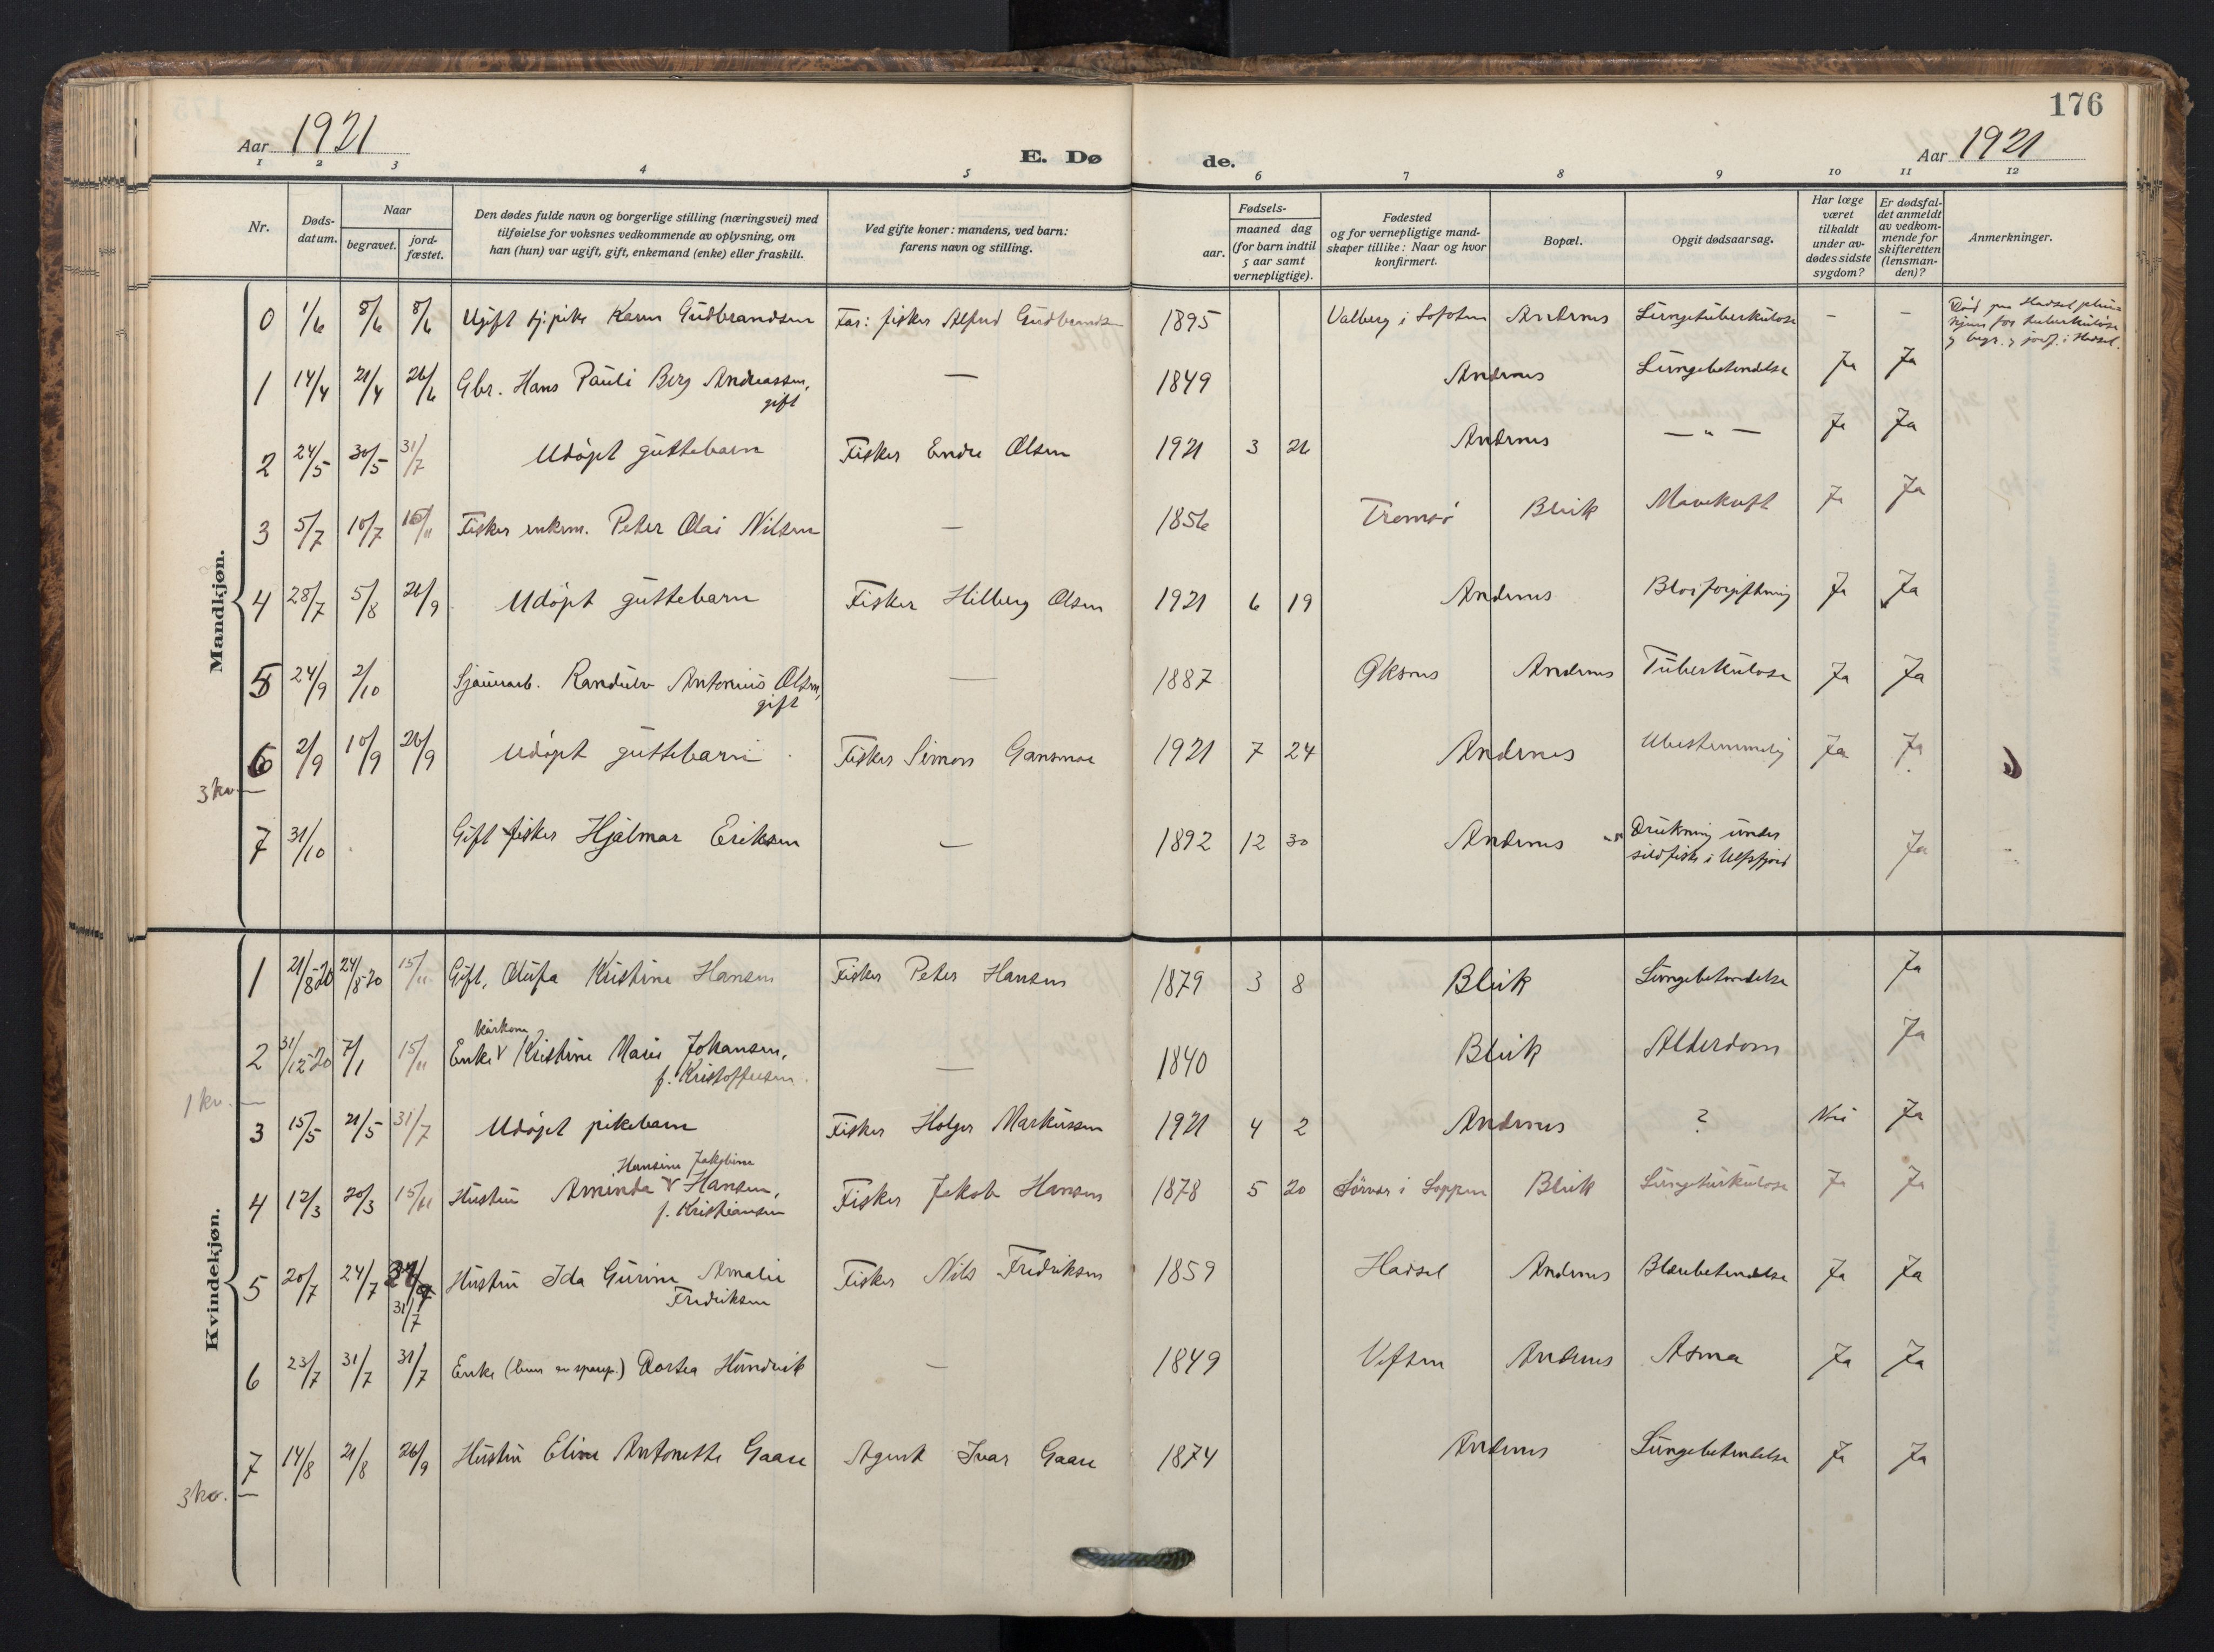 176
Aar 1921
E. Dø
de.
Aar 1921
1 2 3 4 5 6 7 8 9 10 11 12
Nr.
Døds-
datum.
Naar
begravet.
jord-
fæstet.
Den dødes fulde navn og borgerlige stilling (næringsvei) med
tilføielse for voksnes vedkommende av oplysning, om
han (hun) var ugift, gift, enkemand (enke) eller fraskilt.
Ved gifte koner: mandens, ved barn:
farens navn og stilling.
Fødsels-
aar.
maaned dag
(for barn indtil
5 aar samt
vernepligtige).
Fødested
og for vernepligtige mand-
skaper tillike: Naar og hvor
konfirmert.
Bopæl.
Opgit dødsaarsag.
Har læge
været
tilkaldt
under av-
dødes sidste
sygdom?
Er dødsfal-
det anmeldt
av vedkom-
mende for
skifteretten
(lensman-
den)?
Anmerkninger.
Mandkjøn.
0 1/6 8/6 8/6 Ugift tj.pike Karen Gudbrandsen Far: fisker Alfred Gudbrandsen 1895 Valberg i Lofoten Andenes Lungetuberkulose – –
for tuberkuløse
begr. i Hadsel.
1 14/4 21/4 26/6 Gbr. Hans Pauli Berg Andreassen, — 1849 Andenes Lungebetendelse Ja Ja
gift
2 24/5 30/5 31/7 Udøpt guttebarn Fisker Endre Olsen 1921 3 26 Andenes — " — Ja Ja
3 5/7 10/7 15/11 Fisker enkem. Peter Olai Nilsen — 1856 Tromsø Bleik Mavekræft Ja Ja
4 28/7 5/8 26/9 Udøpt guttebarn Fisker Hilberg Olsen 1921 6 19 Andenes Blodforgiftning Ja Ja
5 24/9 2/10 Sjauerarb. Randulv Antonius Olsen, — 1887 Øksnes Andenes Tuberkulose Ja Ja
gift
6 2/9 10/9 26/9 Udøpt guttebarn Fisker Simon Gansmoe 1921 7 24 Andenes Ubestemmelig Ja Ja
3 kv. —
7 31/10 Gift fisker Hjalmar Eriksen — 1892 12 30 Andenes Drukning under Ja
sildfiske i Ulfsfjord
Kvindekjøn.
1 21/8-20 24/8-20 15/11 Gift, Olufa Kristine Hansen Fisker Peter Hansen 1879 3 8 Bleik Lungebetendelse Ja
Kårkone
2 31/12-20 7/1 15/11 Enke Kristine Marie Johansen, — 1840 Bleik Alderdom Ja
f. Kristoffersen.
1 kv. —
3 15/5 21/5 31/7 Udøpt pikebarn Fisker Holger Markussen 1921 4 2 Andenes ? Nei Ja
Hansine Jakobine
4 12/3 20/3 15/11 Hustru Aminda Hansen, Fisker Jakob Hansen 1878 5 20 Sørvær i Loppen Bleik Ja Ja
f. Kristiansen
5 20/7 24/7 Hustru Ida Gurine Amalie Fisker Nils Fredriksen 1859 Hadsel Andenes Blærebetendelse Ja Ja
31/7 Fredriksen
6 23/7 31/7 31/7 Enke Dortea Hundvik — 1849 Vefsen Andenes Asma Ja Ja
7 14/8 21/8 26/9 Hustru Eline Antonette Gaare Agent Ivar Gaare 1874 Andenes Lungebetendelse Ja Ja
3 kv. —